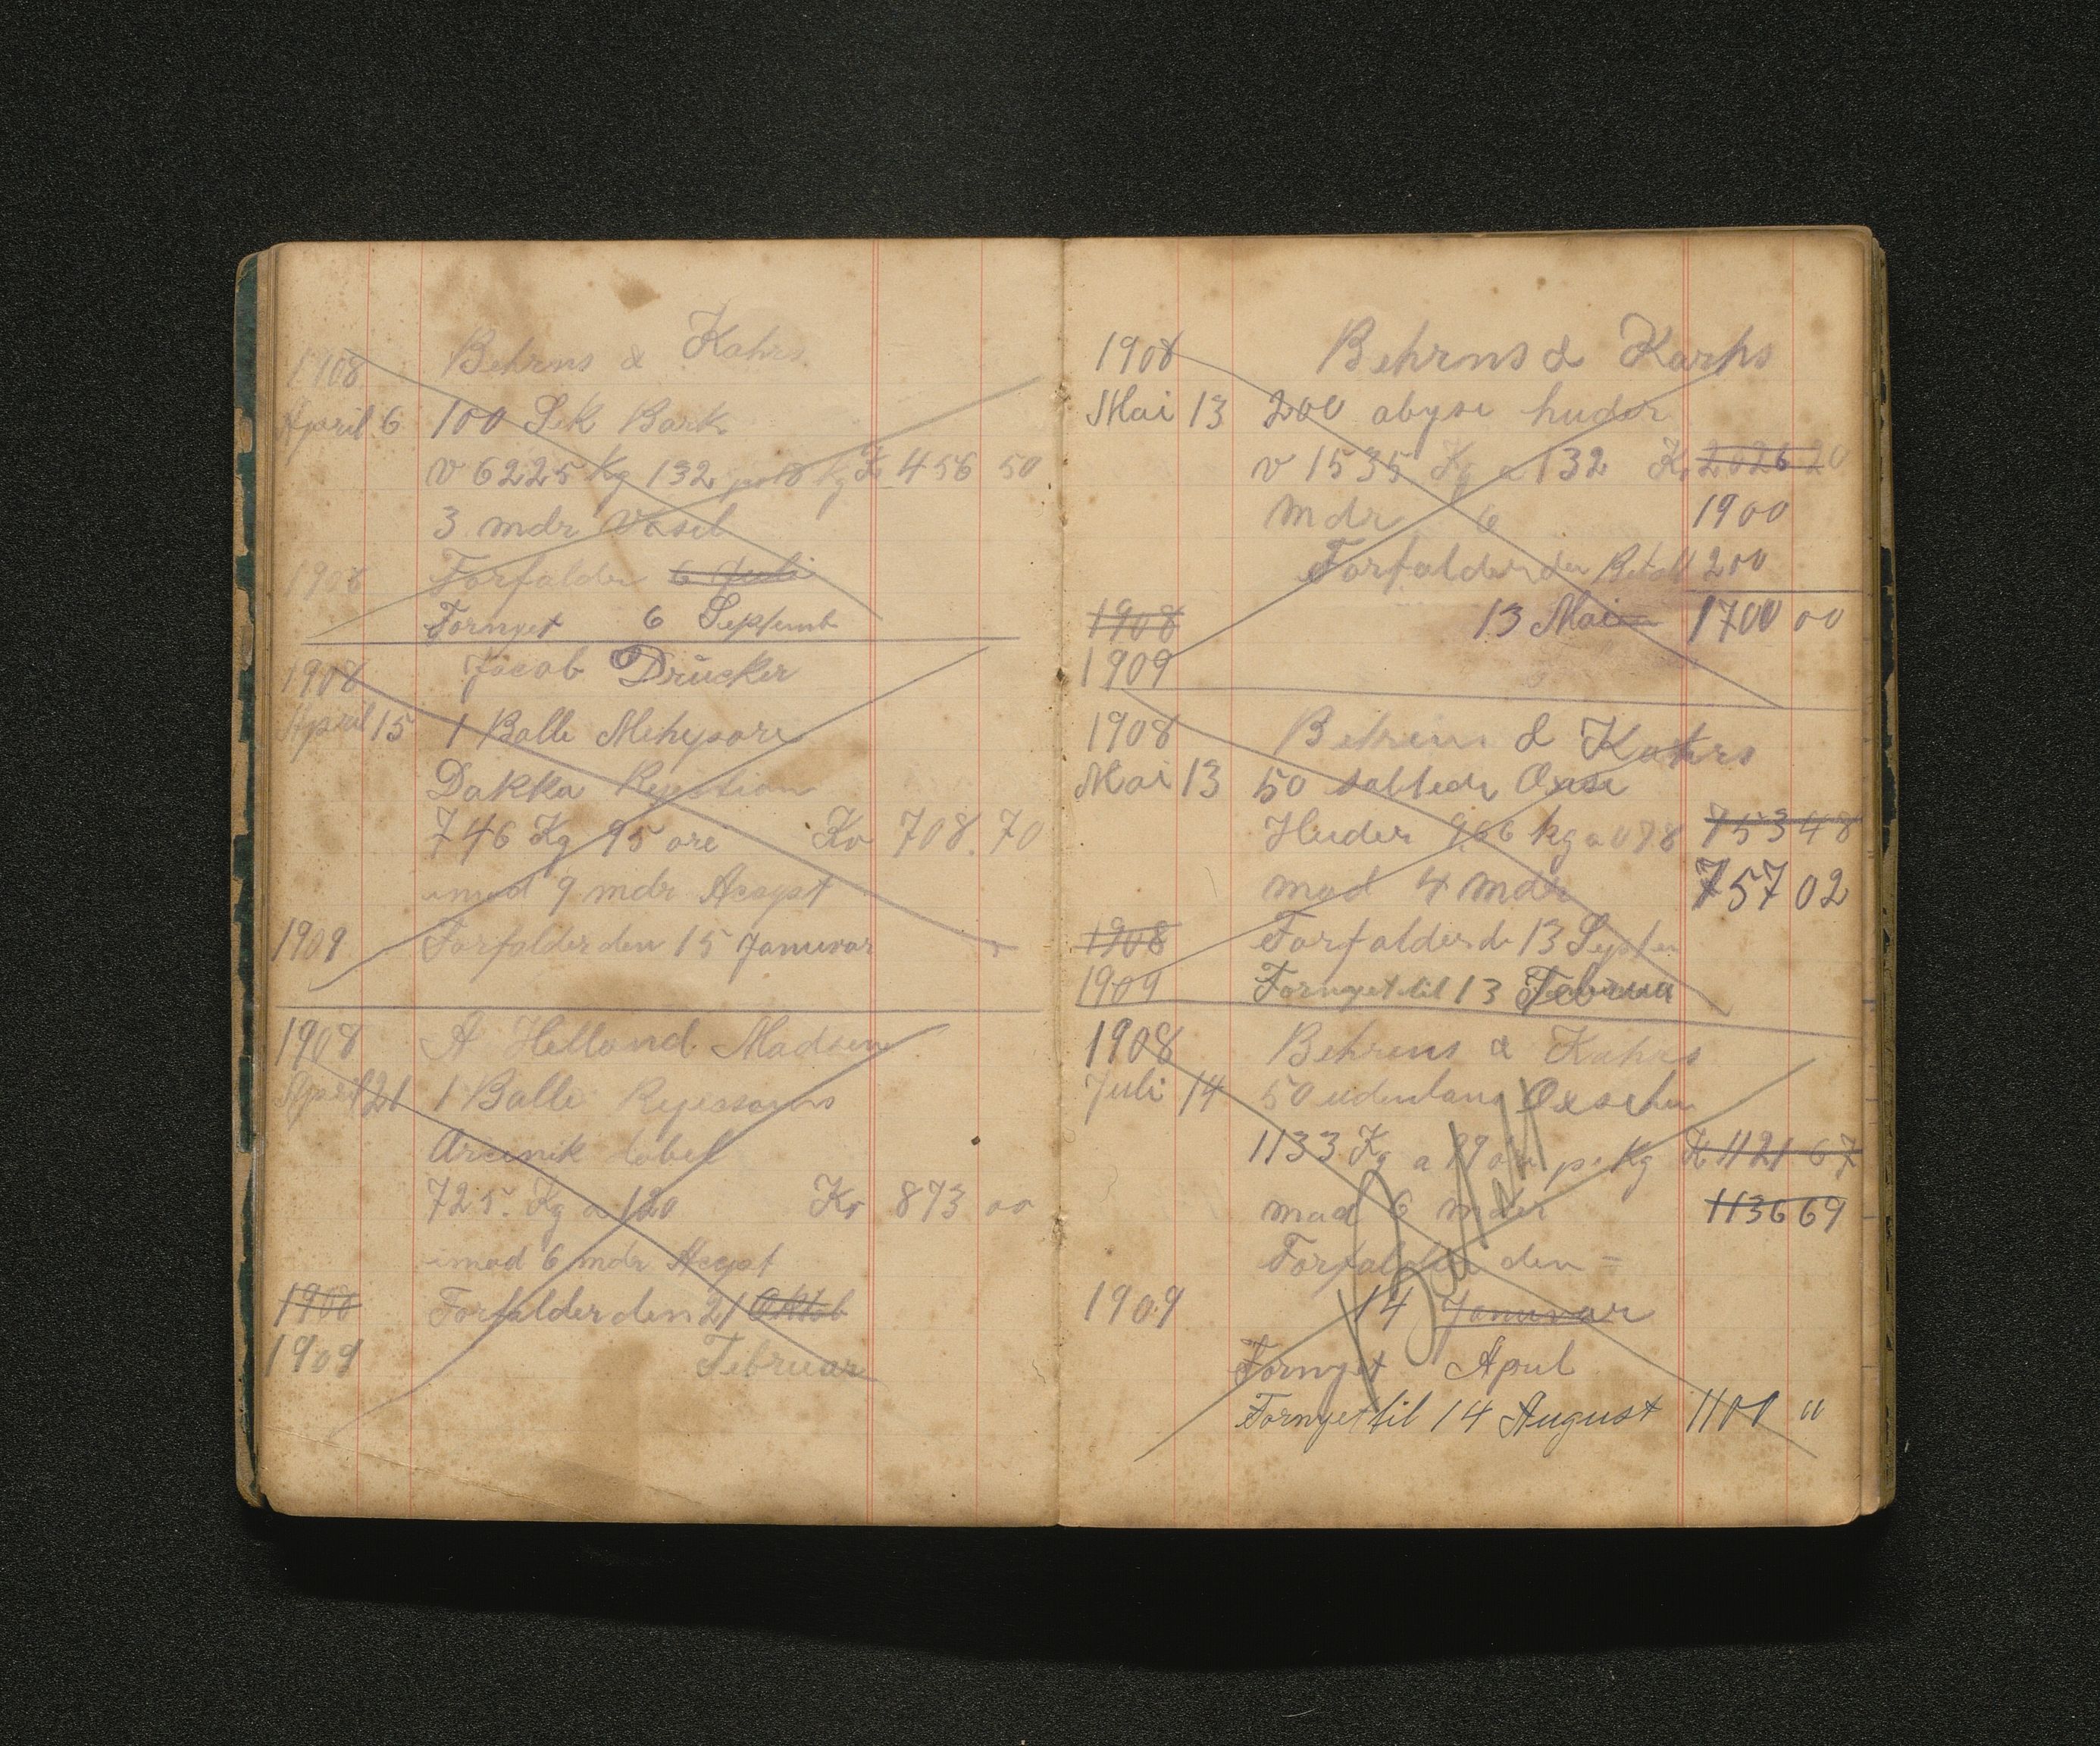 1908 Behrns & Kahrs
April 6 100 Sek Bark
v 6225 Kg 132 kg Kr 456 50
3 mdr Vasel
1908 Forfalder 6 Juli
Fornyet 6 Septemb
1908 Jacob Drucker
April 15 1 Balle Mehepore
Dakka Rejection
746 Kg 95 ore Kr 708.70
imod 9 mdr Acept
1909 Forfalder den 15 Januvar
1908 A Helland Madsen
April 21 1 Balle
Arcenik
725. Kg a 120 Kr 873 00
imod 6 mdr Acept
1908 Forfalder den 21 Oktob
1909 Februar
1908 Behrns & Karhs
Mai 13 200 abyse huder
v 1535 Kg a 132 Kr 2026 20
mdr 6 1900
Forfalder den Betalt 200
1908 13 Mai 1700 00
1909
1908 Behrens & Kahrs
Mai 13 50 saltede Oxse
Huder 966 kg a 078 753 48
mod 4 mdr 757 02
1908 Forfalder de 13 Septem
1909 Fornyet til 13 Februa
1908 Behrens & Kahrs
Juli 14 50 udenlans
1133 Kg a 99 ore pr Kg Kr 1121 67
mod 6 mdr 1136 69
Forfalder den =
1909 14 Januvar
Fornyet April
Fornyet til 14 August 1100 "
Betalt